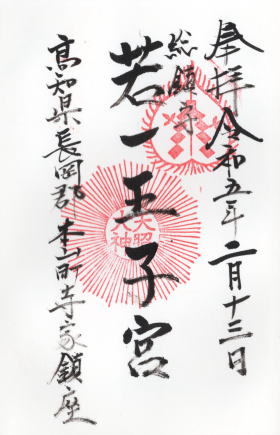 奉拝 令和五年二月十三日
総鎮守
若一王子宮
高知県長岡郡本山町寺家鎮座